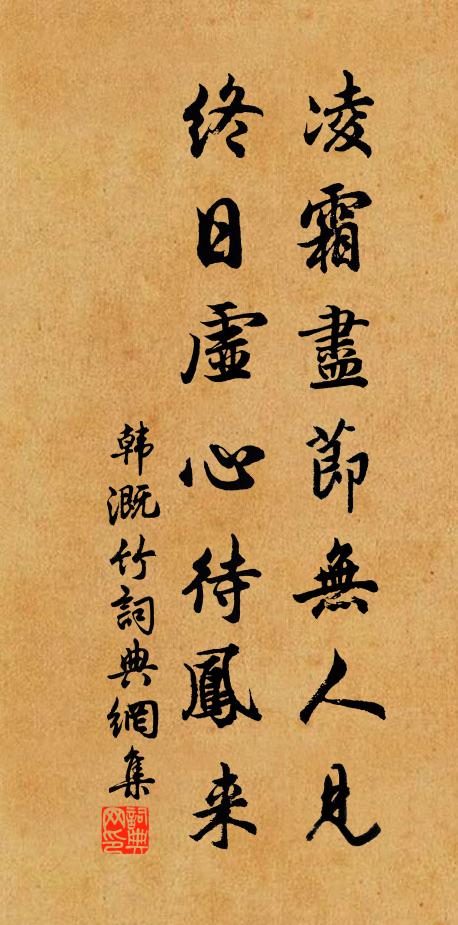 凌霜盡節無人見
終日虛心待鳳来
韩溉竹詞典網集
詞典网印